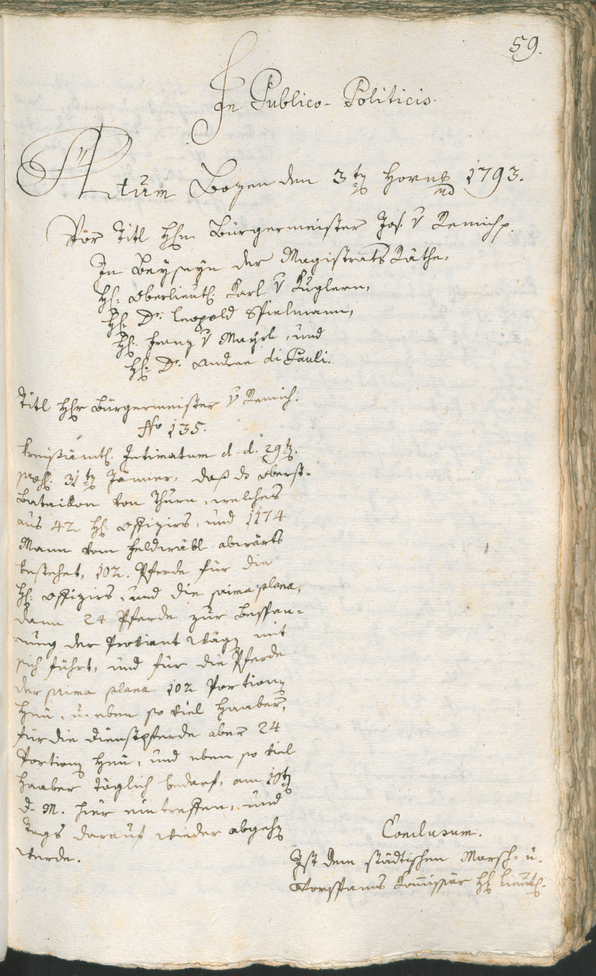 59.
In Publico-Politicis.
Actum Bozen den 3tn Horng 1793.
Vor Titl Hhn Bürgermeister Jos: v Remich.
In Beyseyn der Magistrats Räthe,
Hh: Oberlieut: Karl v Kuglern,
Hh: Dr: Leopold Spielmann,
Hh: Franz v Mayrl, und
Hh: Dr: Andree di Pauli.
Titl Hhr Bürgermeister v Remich.
No 135.
Kreisämtl: Intimatum d. d. 29tn.
31tn Jänner, daß d Oberst-
Bataillon von Thurn, welches
aus 42 Hh: Offiziers, und 1174
Mann vom Feldwäbl abwärts
bestehet, 102. Pferde für die
Hh: Offiziers, und die prima plana,
dann 24 Pferde zur Bespan-
nung der Proviant Wägn mit
sich führt, und für die Pferde
der prima plana 102 Portionn
Heu, u: eben so viel Haaber,
für die Dienstpferde aber 24
Portionn Heu, und eben so viel
Haaber täglich bedarf, am 10tn
d. M. hier eintreffen, und
Tags darauf wieder abgehn
werde.
Conclusum.
Ist dem städtischen Marsch- u.
Vorspanns Kommissär Hh Lieut: